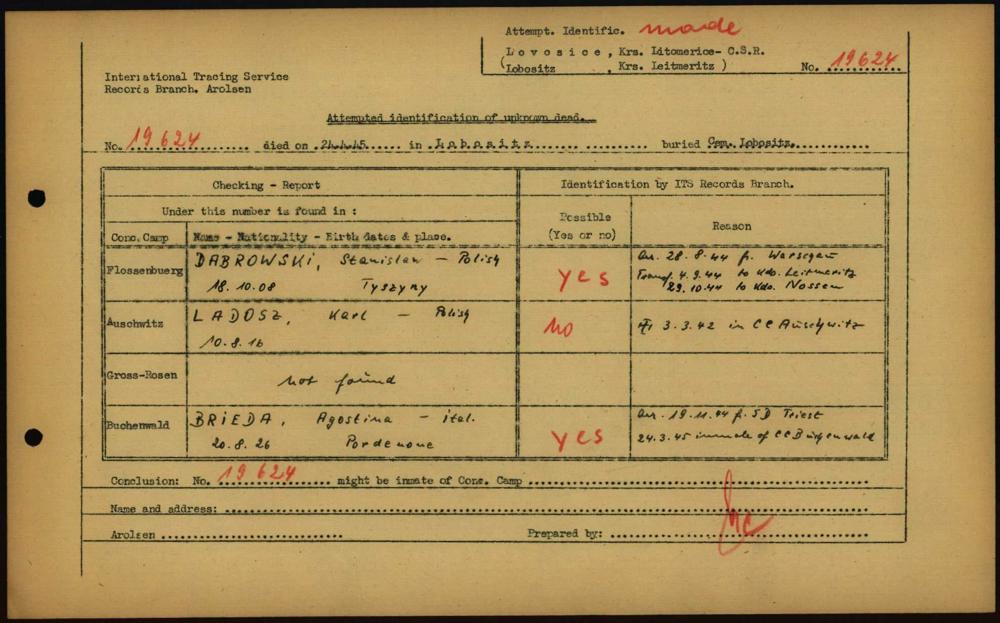 Attempt. Identific. made
Lovosice, Krs. Litomerice- C.S.R.
(Lobositz , Krs. Leitmeritz ) No. 19624
International Tracing Service
Records Branch, Arolsen
Attempted identification of unknown dead.
No. 19624 died on 24.4.45...... in Lobositz............... buried Cem. Lobositz.............
Checking - Report
Identification by ITS Records Branch.
Under this number is found in :
Possible
(Yes or no)
Reason
Conc. Camp
Name - Nationality - Birth dates & place.
Flossenbuerg
DABROWSKI, Stanislaw - Polish
18.10.08 Tyszyny
yes
Arr. 28.8.44 f. Warschau
Transf. 4.9.44 to Kdo. Leitmeritz
29.10.44 to Kdo. Nossen
Auschwitz
LADOSZ, Karl - Polish
10.8.16
no
3.3.42 in CC Auschwitz
Gross-Rosen
not found
Buchenwald
BRIEDA, Agostina - ital.
20.8.26 Pordenone
yes
Arr. 19.11.44 f. SD Triest
24.3.45 inmate of CC Buchenwald
Conclusion: No. 19624 might be inmate of Conc. Camp
Name and address:
Arolsen
Prepared by: